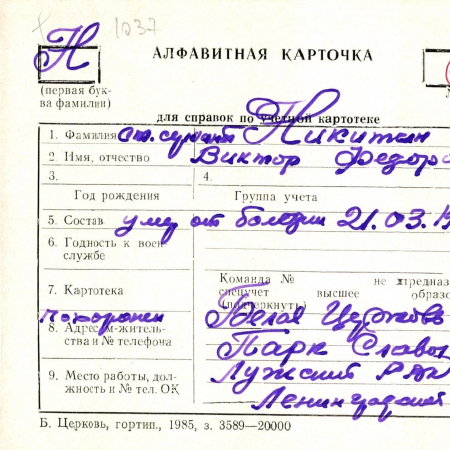 1037
Н
АЛФАВИТНАЯ КАРТОЧКА
(первая бук-
ва фамилии)
для справок по учетной картотеке
1. Фамилия ст. сержант Никитин
2. Имя, отчество Виктор Федоро
3. 4.
Год рождения Группа учета
5. Состав умер от болезни 21.03.19
6. Годность к воен
службе
Команда № не предназ
7. Картотека спецучет высшее образо
(подчеркнуть)
похоронен Белая Церковь
8. Адрес м-житель-
ства и № телефона Парк Славы
9. Место работы, дол-
жность и № тел. ОК Лужский рай
Ленинградский
Б. Церковь, гортип., 1985, з. 3589—20000